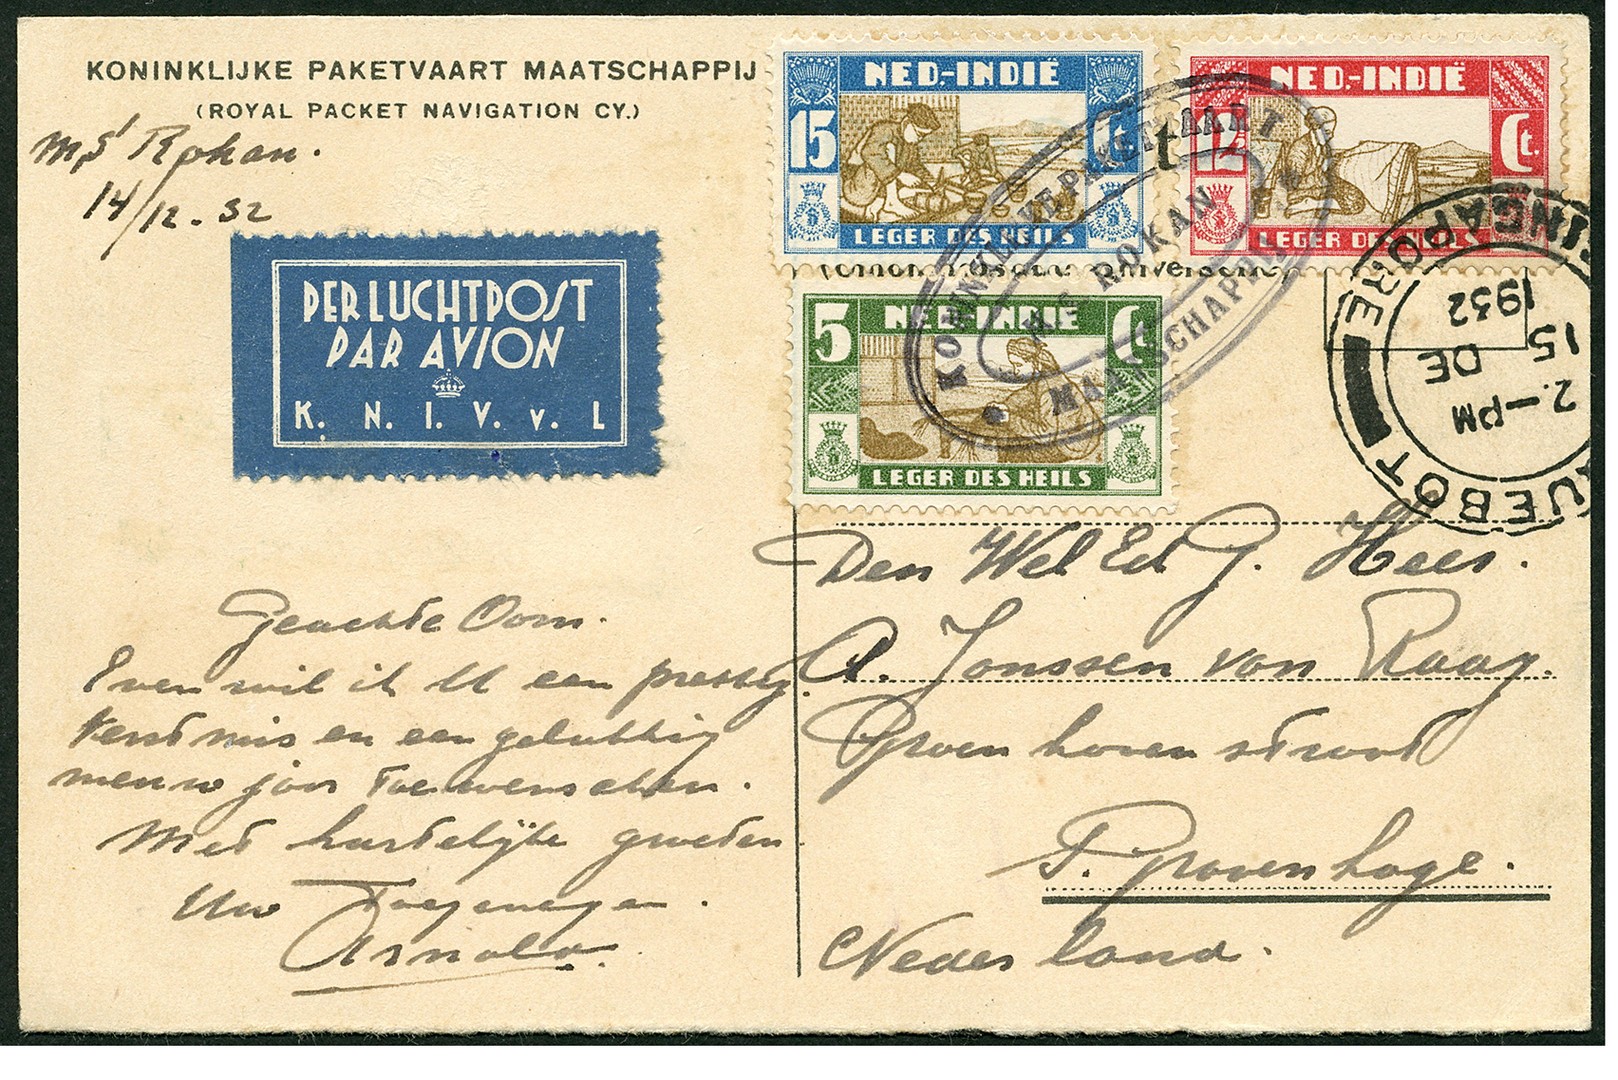 KONINKLIJKE PAKETVAART MAATSCHAPPIJ
(ROYAL PACKET NAVIGATION CY.)
M,S' Rokan.
14/12-32
PER LUCHTPOST
PAR AVION
K. N. I. V. v. L
NED-INDIË
15 Ct.
LEGER DES HEILS
NED-INDIË
12½ Ct.
LEGER DES HEILS
NED-INDIË
5 Ct.
LEGER DES HEILS
KONINKLIJKE PAKETVAART
MS ROKAN
MAATSCHAPPIJ
SINGAPORE
2-PM
15 DE
1932
QUEBOT
Geachte Oom.
Even wil ik U een prettig
Kerstmis en een gelukkig
nieuw jaar toewenschen.
Met hartelijke groeten
Uw Toegenegen.
Arnold.
Den Wel Ed G. Heer.
A. Janssen van Raay.
Groen hoven straat
S. Gravenhage.
Nederland.